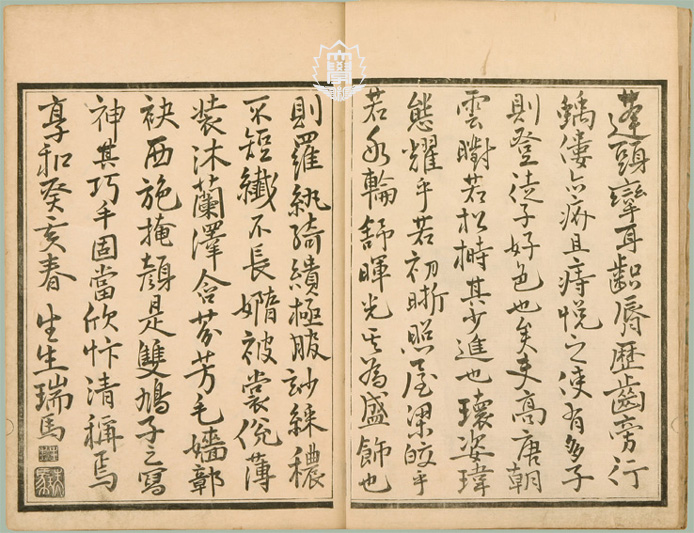 蓬頭攣耳齞脣歴齒旁行
踽僂亦疥且痔悦之使有多子
則登徒子好色也矣夫高唐朝
雲㬣若松榯其少進也瓌姿瑋
態耀乎若初晣照屋梁皎乎
若氷輪舒暉光其為盛飾也
則羅紈綺繢極服玅綵穠
不短纖不長嫷被裳侻薄
装沐蘭澤含芬芳毛嬙鄣
袂西施掩顔是雙鳩子之寫
神其巧乎固當欣忭清稱焉
享和癸亥春 生生瑞馬